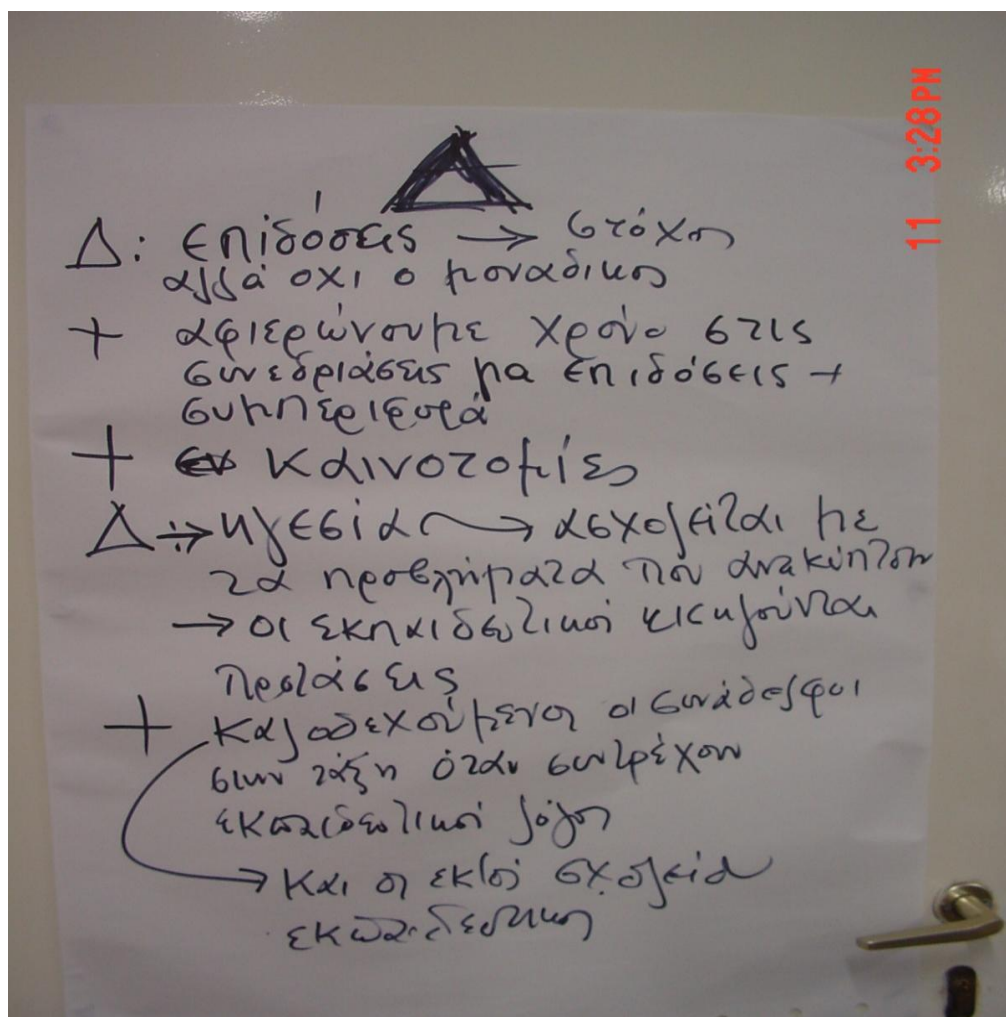 Δ
Δ: επιδόσεις → στόχος
αλλά όχι ο μοναδικος
+ αφιερώνουμε χρόνο στις
συνεδριάσεις για επιδόσεις +
συμπεριφορά
+ καινοτομίες
Δ → ηγεσία → ασχολείται με
τα προβλήματα που ανακύπτουν
→ οι εκπαιδευτικοί εισηγούνται
προτάσεις
+ καλοδεχούμενοι οι συνάδελφοι
στην τάξη όταν συντρέχουν
εκπαιδευτικοί λόγοι
→ και οι εκτός σχολείου
εκπαιδευτικοι
11 3:28PM